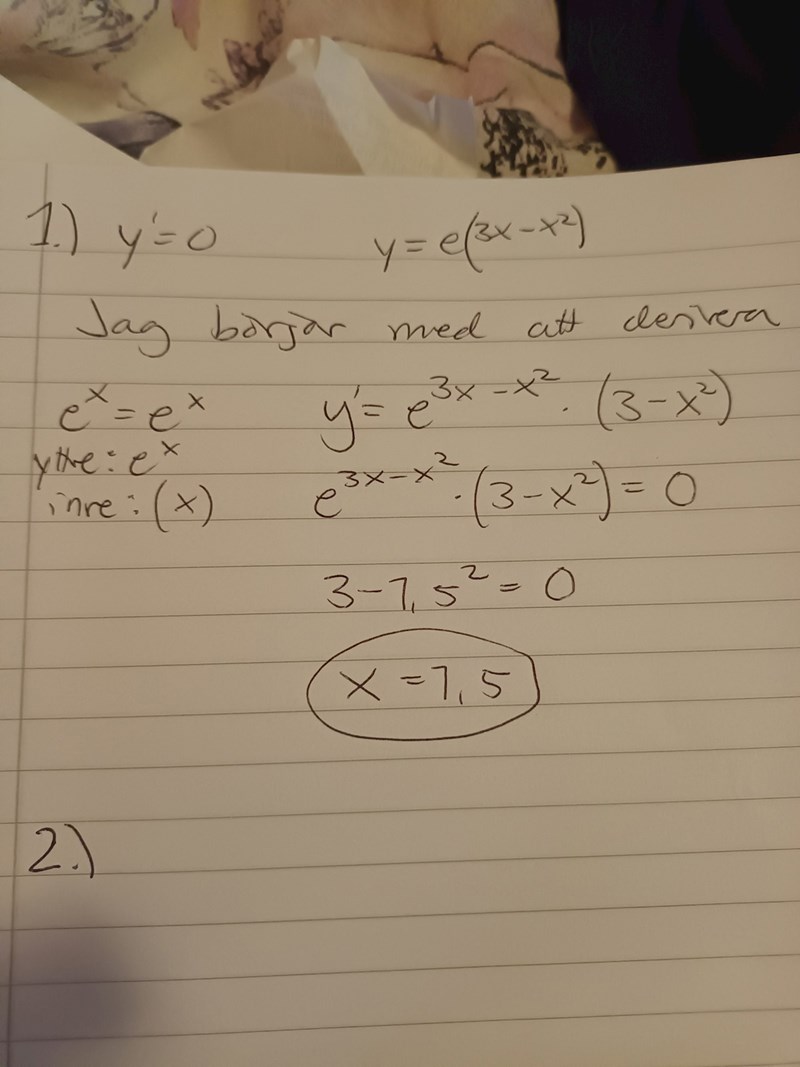 1.) y'=0 y=e(3x-x²)
Jag börjar med att derivera
eˣ=eˣ y'=e^3x-x²·(3-x²)
yttre: eˣ
inre: (x) e^3x-x²·(3-x²)=0
3-1,5²=0
x=1,5
2.)